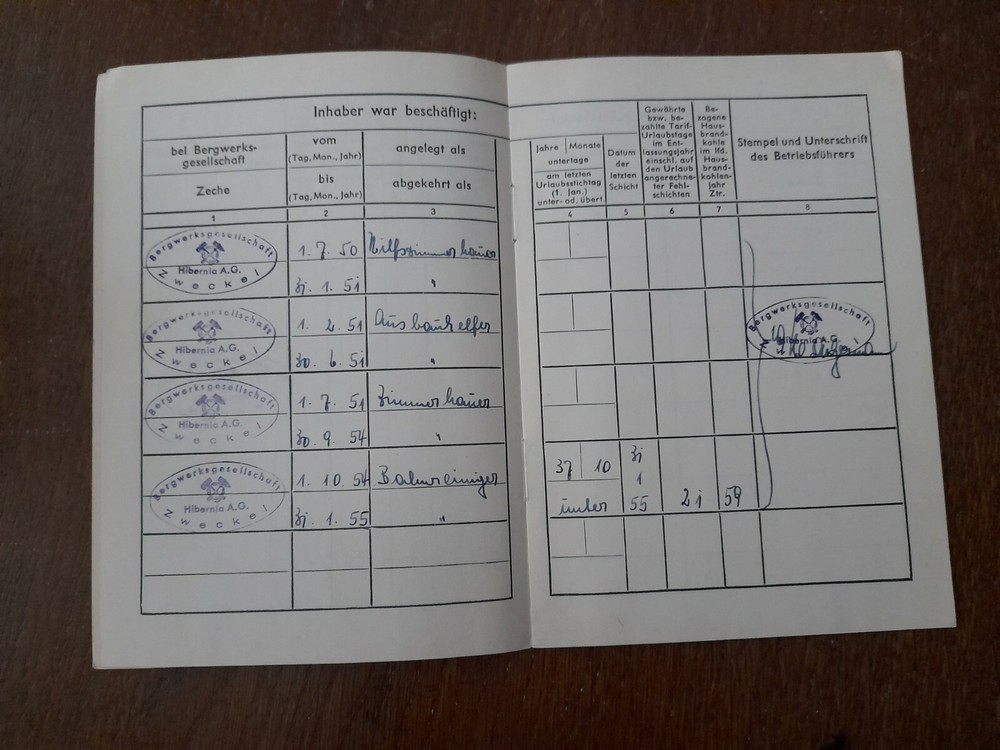 Inhaber war beschäftigt:
bei Bergwerks-
gesellschaft
Zeche
vom
(Tag, Mon., Jahr)
bis
(Tag, Mon., Jahr)
angelegt als
abgekehrt als
1
2
3
Bergwerksgesellschaft
Hibernia A.G.
Zweckel
1. 7. 50
Hilfszimmerhauer
31. 1. 51
"
Bergwerksgesellschaft
Hibernia A.G.
Zweckel
1. 2. 51
Ausbauhelfer
30. 6. 51
"
Bergwerksgesellschaft
Hibernia A.G.
Zweckel
1. 7. 51
Zimmerhauer
30. 9. 54
"
Bergwerksgesellschaft
Hibernia A.G.
Zweckel
1. 10. 54
Bahnreiniger
31. 1. 55
"
Jahre
Monate
untertage
am letzten
Urlaubsstichtag
(1. Jan.)
unter- od. übert.
Datum
der
letzten
Schicht
Gewährte
bzw. be-
zahlte Tarif-
Urlaubstage
im Ent-
lassungsjahr
einschl. auf
den Urlaub
angerechne-
ter Fehl-
schichten
Be-
zogene
Haus-
brand-
kohle
im lfd.
Haus-
brand-
kohlen-
jahr
Ztr.
Stempel und Unterschrift
des Betriebsführers
4
5
6
7
8
Bergwerksgesellschaft
Hibernia A.G.
37
10
31
1
unter
55
21
59